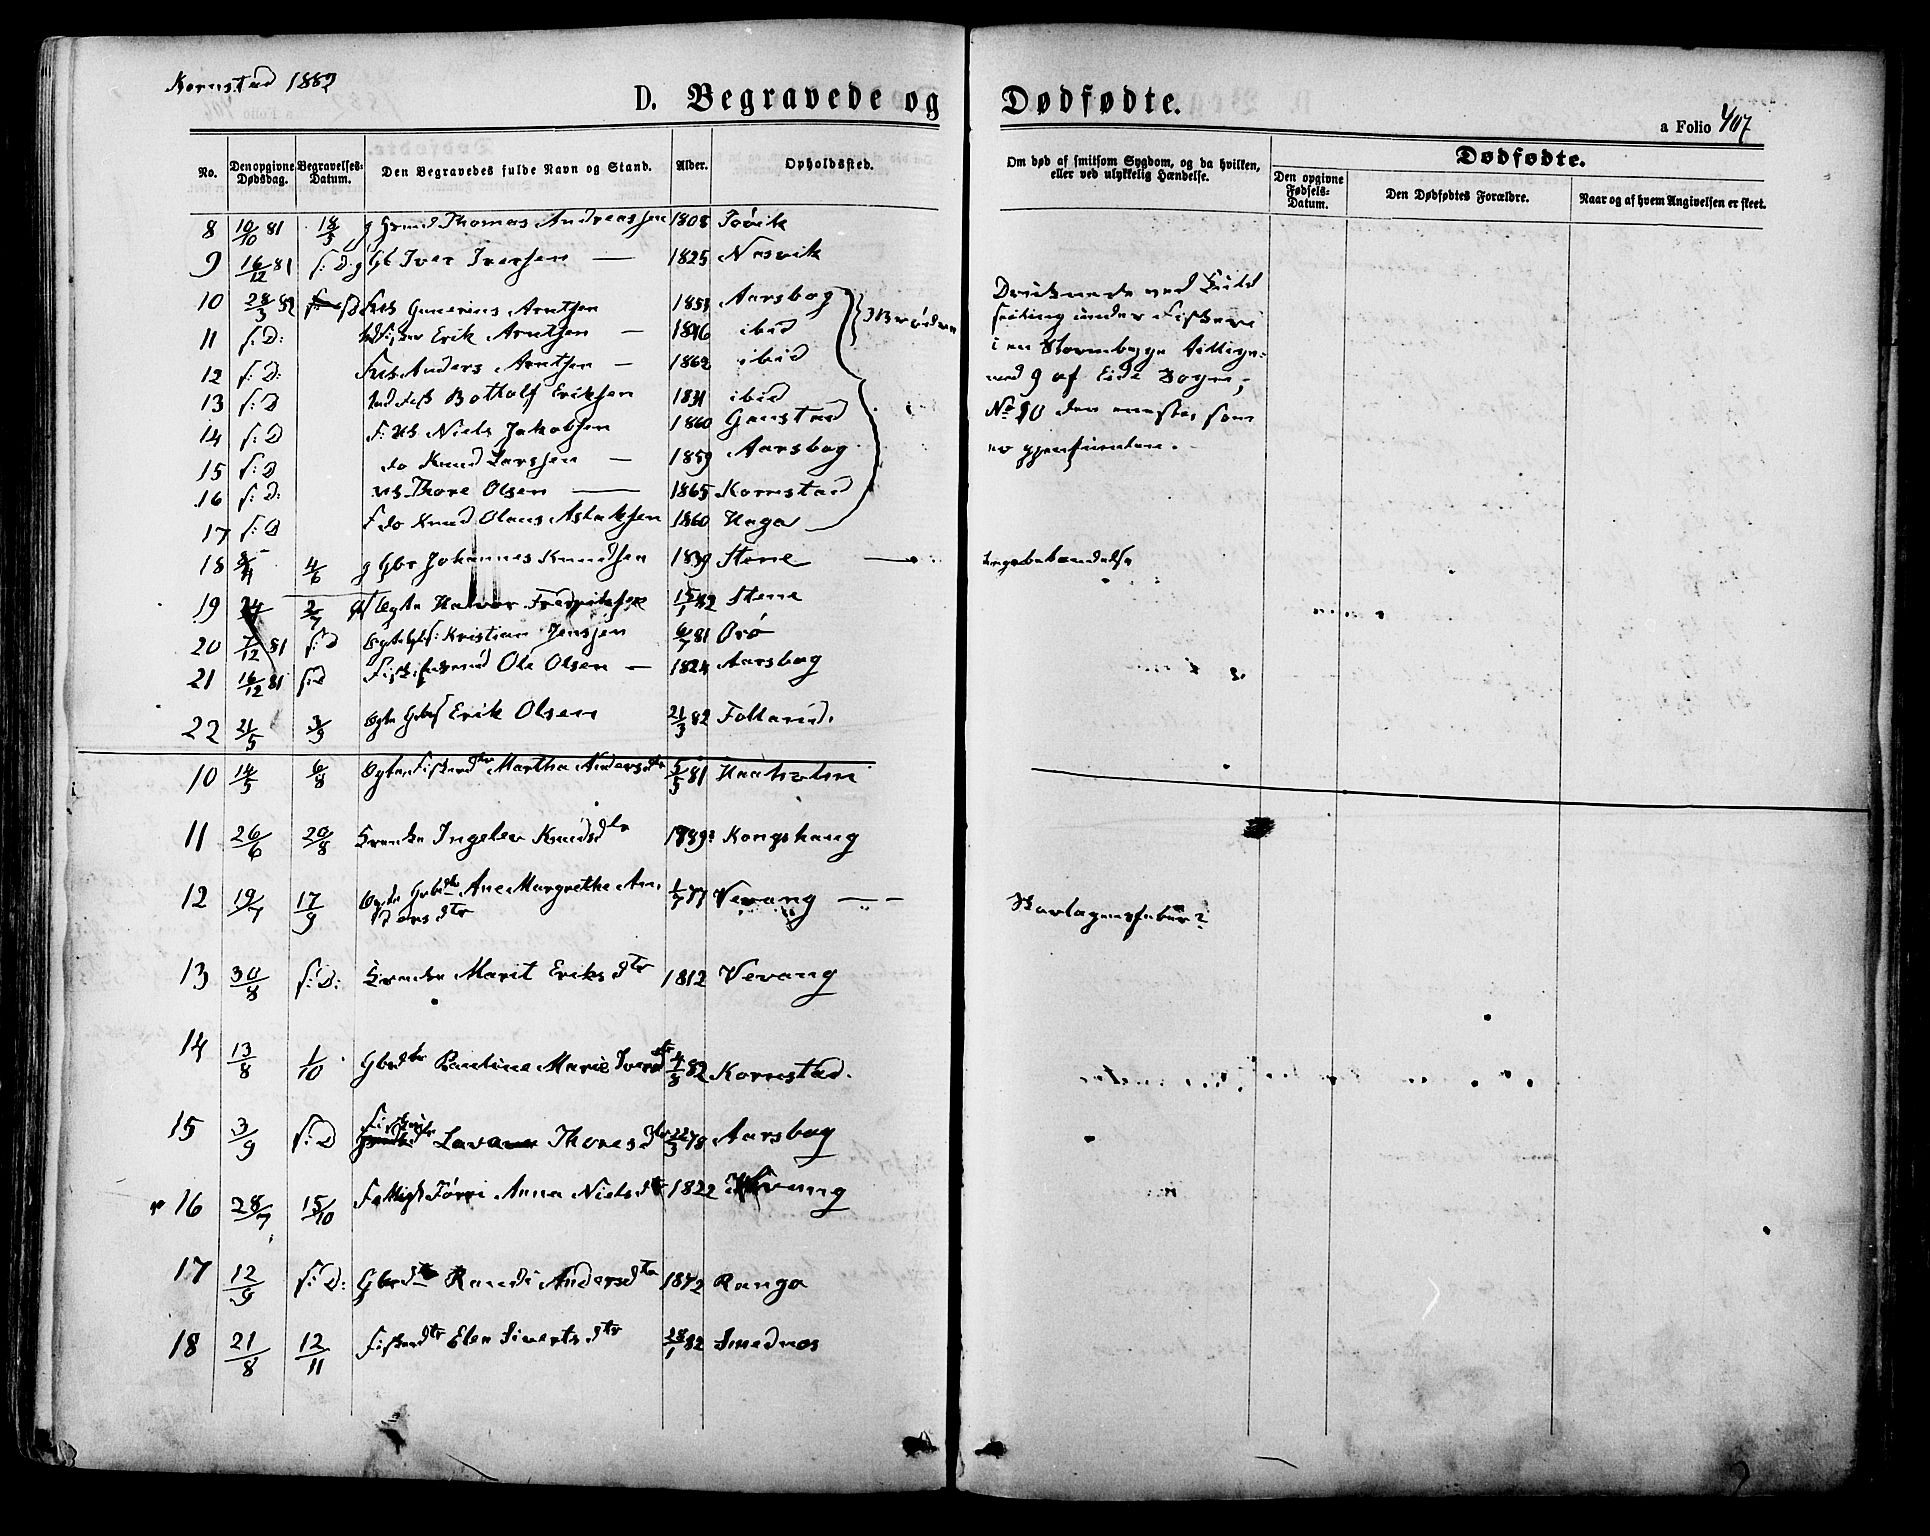 Kornstad 1882
D. Begravede og Dødfødte.
a Folio 407
No. Den opgivne Dødsdag. Begravelses-Datum. Den Begravedes fulde Navn og Stand. Alder. Opholdssted. Om død af smitsom Sygdom, og da hvilken, eller ved ulykkelig Hændelse. Dødfødte.
Den opgivne Fødsels-Datum. Den Dødfødtes Forældre. Naar og af hvem Angivelsen er skeet.
8 10/10 81 18/3 g Thomas Andreassen 1808
9 16/12 81 s: D. g Gb Iver Iversen — 1825 Nasvik
10 28/3 82 Gunerius Arntsen 1853 Aarsbog 3 Brødre
11 s: D: Erik Arntsen — 1846 ibid
12 s: D: Anders Arntsen — 1862 ibid
13 s: D Bottolf Eriksen 1831 ibid
14 s: D Niels Jakobsen 1860 Gaustad
15 s: D do Knud Larssen — 1859 Aarsbog
16 s: D: Thore Olsen — 1865 Kornstad
17 s: D do Knud Olaus Aslaksen 1860 Haga
Druknede ved
seiling under Fiskeri
i en Stormbyge tillige-
med 9 af Eide Sogn,
No 10 den eneste, som
er gjenfunden.
18 4/6 g Gbr Johannes Knudsen 1839 Stene —
19 2/7 Halvor Fredriksen 15/1 42 Stene
20 7/12 81 s: D Kristian Jenssen 6/7 81 Orø
21 16/12 81 s: D Ole Olsen — 1824 Aarsbog
22 21/5 3/9 Ægte Gbrs Erik Olsen 21/3 82 Folland.
10 14/5 6/8 Ægte Fiskerdtr Martha Andersdtr 5/5 81 Haaholm
11 26/6 20/8 Enke Ingelev Knudsdtr Kongshaug
12 19/7 17/9 Ægte Gbrdtr Ane Margrethe An-
dersdtr 1/7 77 Vevang — Skarlagensfeber?
13 30/8 s: D: Enke Marit Eriksdtr 1812 Vevang
14 13/8 1/10 Gbrdtr Pauline Marie Iversdtr 4/3 82 Kornstad.
15 3/9 s: D Fiskerdtr Thoresdtr 22/3 78 Aarsbog
16 28/7 15/10 Anna Nielsdtr 1822 Vevang
17 12/9 s: D: Gbrdtr Randi Andersdtr 1872 Ranga
18 21/8 12/11 Fiskerdtr Elen Sivertsdtr 28/1 82 Smednes